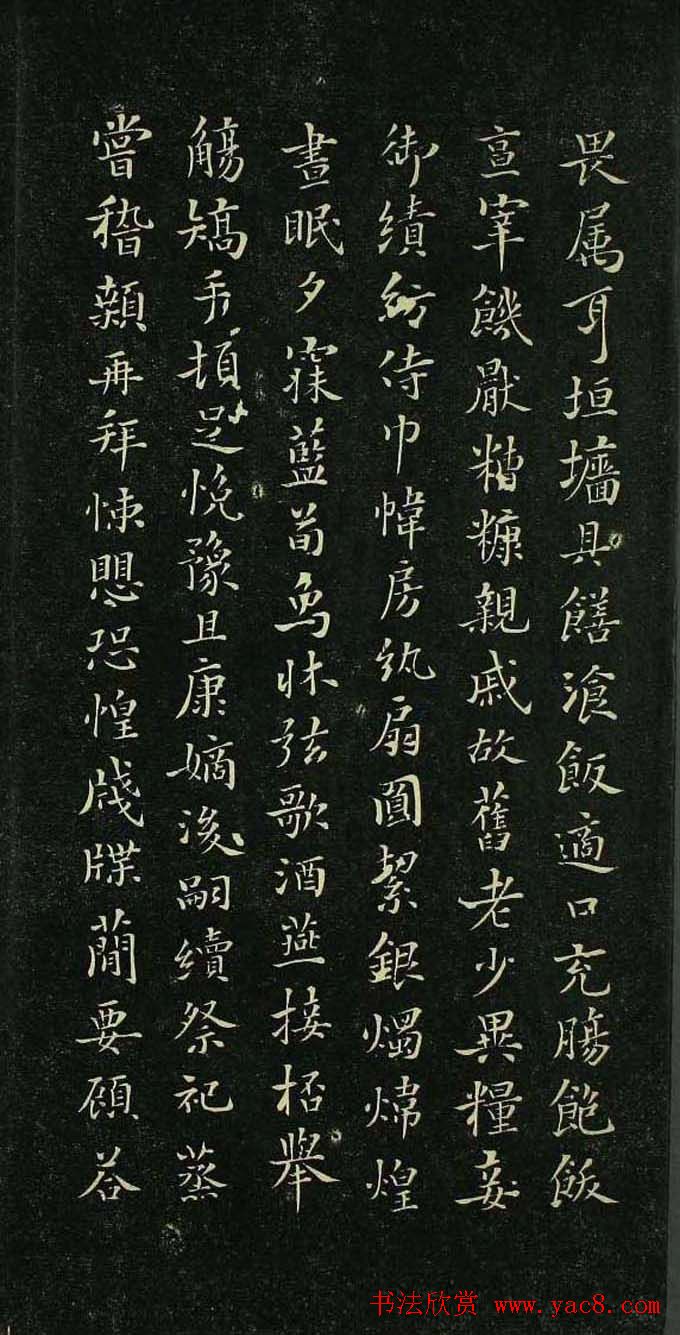 畏属耳垣墻具饍湌飯適口充膓飽飫
亯宰饑厭糟糠親戚故舊老少異糧妾
御績紡侍巾幃房紈扇圓絜銀燭煒煌
晝眠夕寐藍筍象牀弦歌酒燕接桮舉
觴矯手頓足恱豫且康嫡後嗣續祭祀蒸
嘗稽顙再拜悚懼恐惶牋牒蕳要顧荅
书法欣赏 www.yac8.com